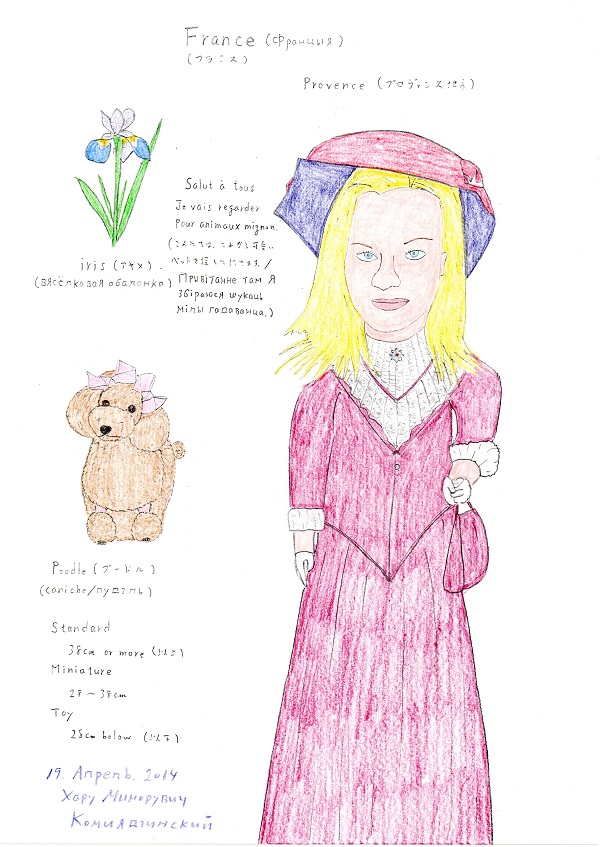 France (Франция)
(フランス)
Provence (プロヴァンス地方)
Salut à tous
Je vais regarder
Pour animaux mignon.
(こんにちは、
Прывітанне там Я
Збіраюся шукаць
мілы гадаванца.)
iris (アヤメ).
(Вясёлковая абалонка)
Poodle (プードル)
(Caniche/пудэль)
Standard
38cm or more (以上)
Miniature
28～38cm
Toy
28cm below (以下)
19. Апрель. 2014
Хару Минорувич
Комиядзинский